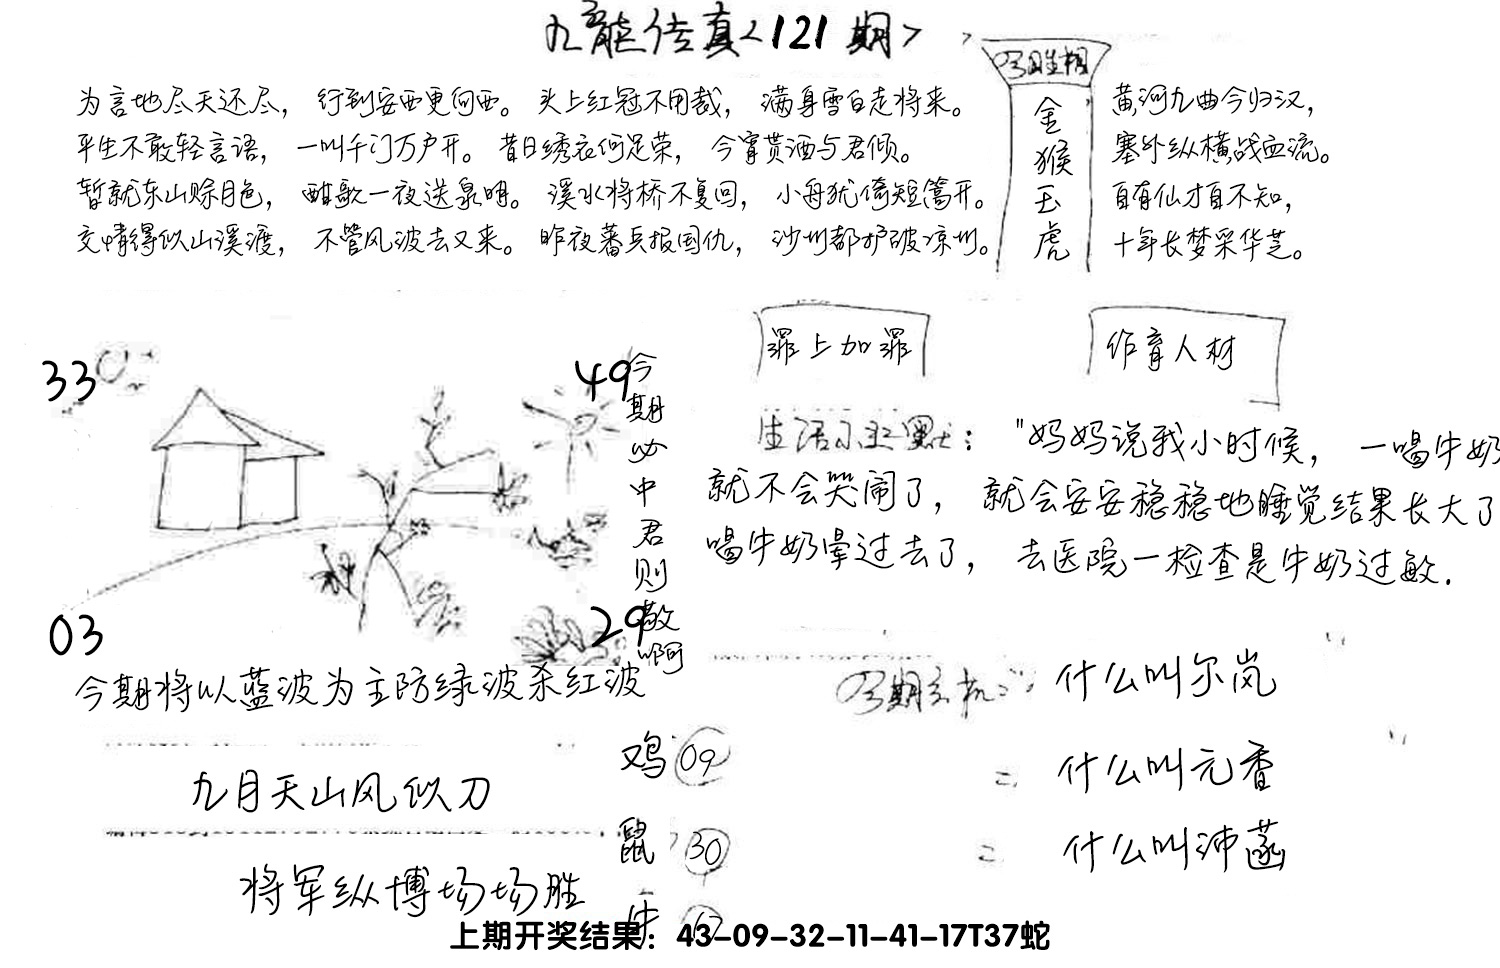 九龍传真<121期>
为言地尽天还尽，行到安西更向西。头上红冠不用裁，满身雪白走将来。
平生不敢轻言语，一叫千门万户开。昔日绣衣何足荣，今宵贳酒与君倾。
暂就东山赊月色，酣歌一夜送泉明。溪水将桥不复回，小舟犹倚短篙开。
交情得似山溪渡，不管风波去又来。昨夜蕃兵报国仇，沙州都护破凉州。
今期生相
金猴玉虎
黄河九曲今归汉，
塞外纵横战血流。
自有仙才自不知，
十年长梦采华芝。
33
49
03
29
今期必中君则敬啊
今期将以蓝波为主防绿波杀红波
九月天山风似刀
将军纵博场场胜
鸡09
鼠30
牛
罪上加罪
作育人材
生活小幽默："妈妈说我小时候，一喝牛奶
就不会哭闹了，就会安安稳稳地睡觉结果长大了
喝牛奶晕过去了，去医院一检查是牛奶过敏.
今期玄机：什么叫尔岚
什么叫元香
什么叫沛菡
上期开奖结果：43-09-32-11-41-17T37蛇